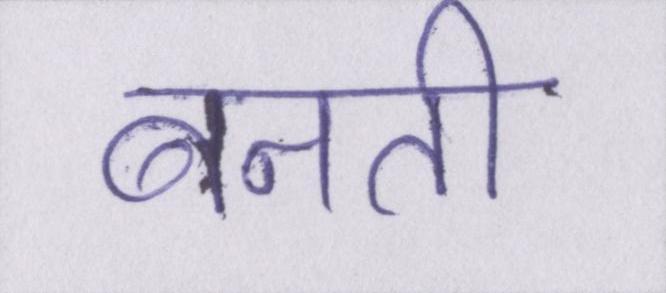 बनती